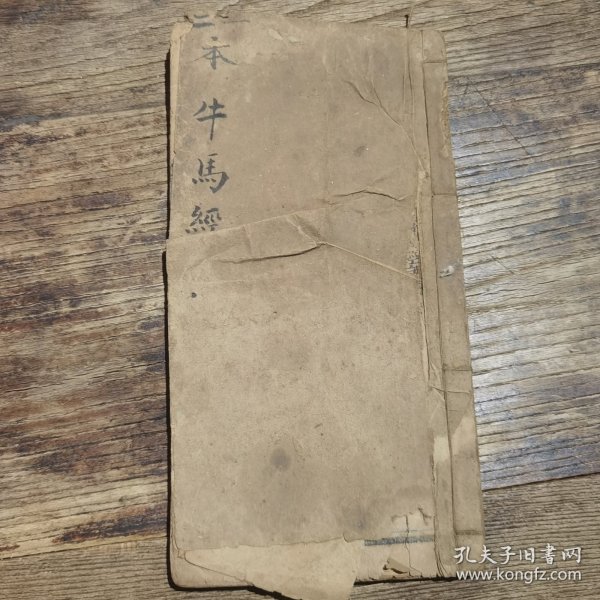 二本牛馬經
孔夫子旧書网
www.kongfz.com